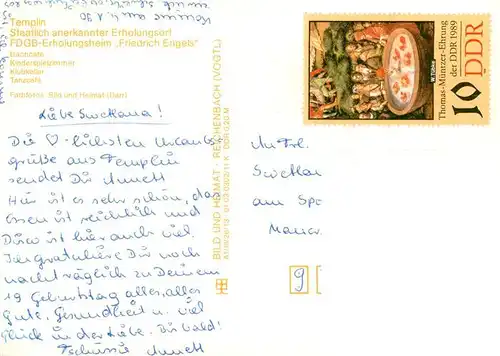 Templin
Staatlich anerkannter Erholungsort
FDGB-Erholungsheim „Friedrich Engels"
Kinderspielzimmer
Klubkeller
Tanzcafé
Farbfotos: Bild und Heimat
Liebe Swetlana!
Die ♡-lichsten Urlaubs-
grüße aus Templin
sendet Dir Annett
Hier ist es sehr schön, das
Essen ist reichlich und
Disco ist hier auch viel.
Ich gratuliere Dir noch
nachträglich zu Deinem
19 Geburtstag alles, alles
Gute, Gesundheit u. viel
Glück in der Liebe. Bis bald!
Tschüssi Annett
BILD UND HEIMAT · REICHENBACH (VOGTL)
Thomas-Müntzer-Ehrung
der DDR 1989
10 DDR
W.Tübke
An Frl.
Swetlan
am SPE
9